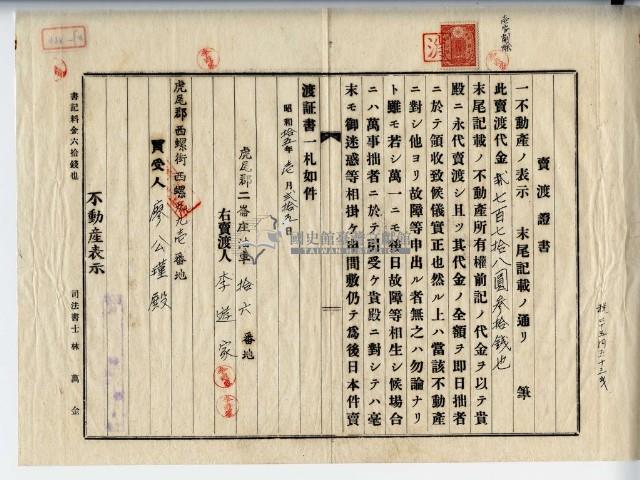 賣渡證書
一不動產ノ表示 末尾記載ノ通リ 筆
此賣渡代金貳七百七拾八圓參拾錢也
末尾記載ノ不動產所有權前記ノ代金ヲ以テ貴
殿ニ永代賣渡シ且ツ其代金ノ全額ヲ即日拙者
ニ於テ領收致候儀實正也然ル上ハ當該不動產
ニ對シ他ヨリ故障等申出ル者無之ハ勿論ナリ
ト雖モ若シ萬一ニモ後日故障等相生シ候場合
ニハ萬事拙者ニ於テ引受ケ貴殿ニ對シテハ毫
末モ御迷惑等相掛ケ間敷仍テ爲後日本件賣
渡証書一札如件
昭和拾五年壱月貳拾九日
虎尾郡二崙庄 拾六番地
右賣渡人 李遊家
虎尾郡西螺街西螺 九壱番地
買受人 廖公瑾殿
不動產表示
書記料金六拾錢也
司法書士 林萬金
國史館臺灣文獻館